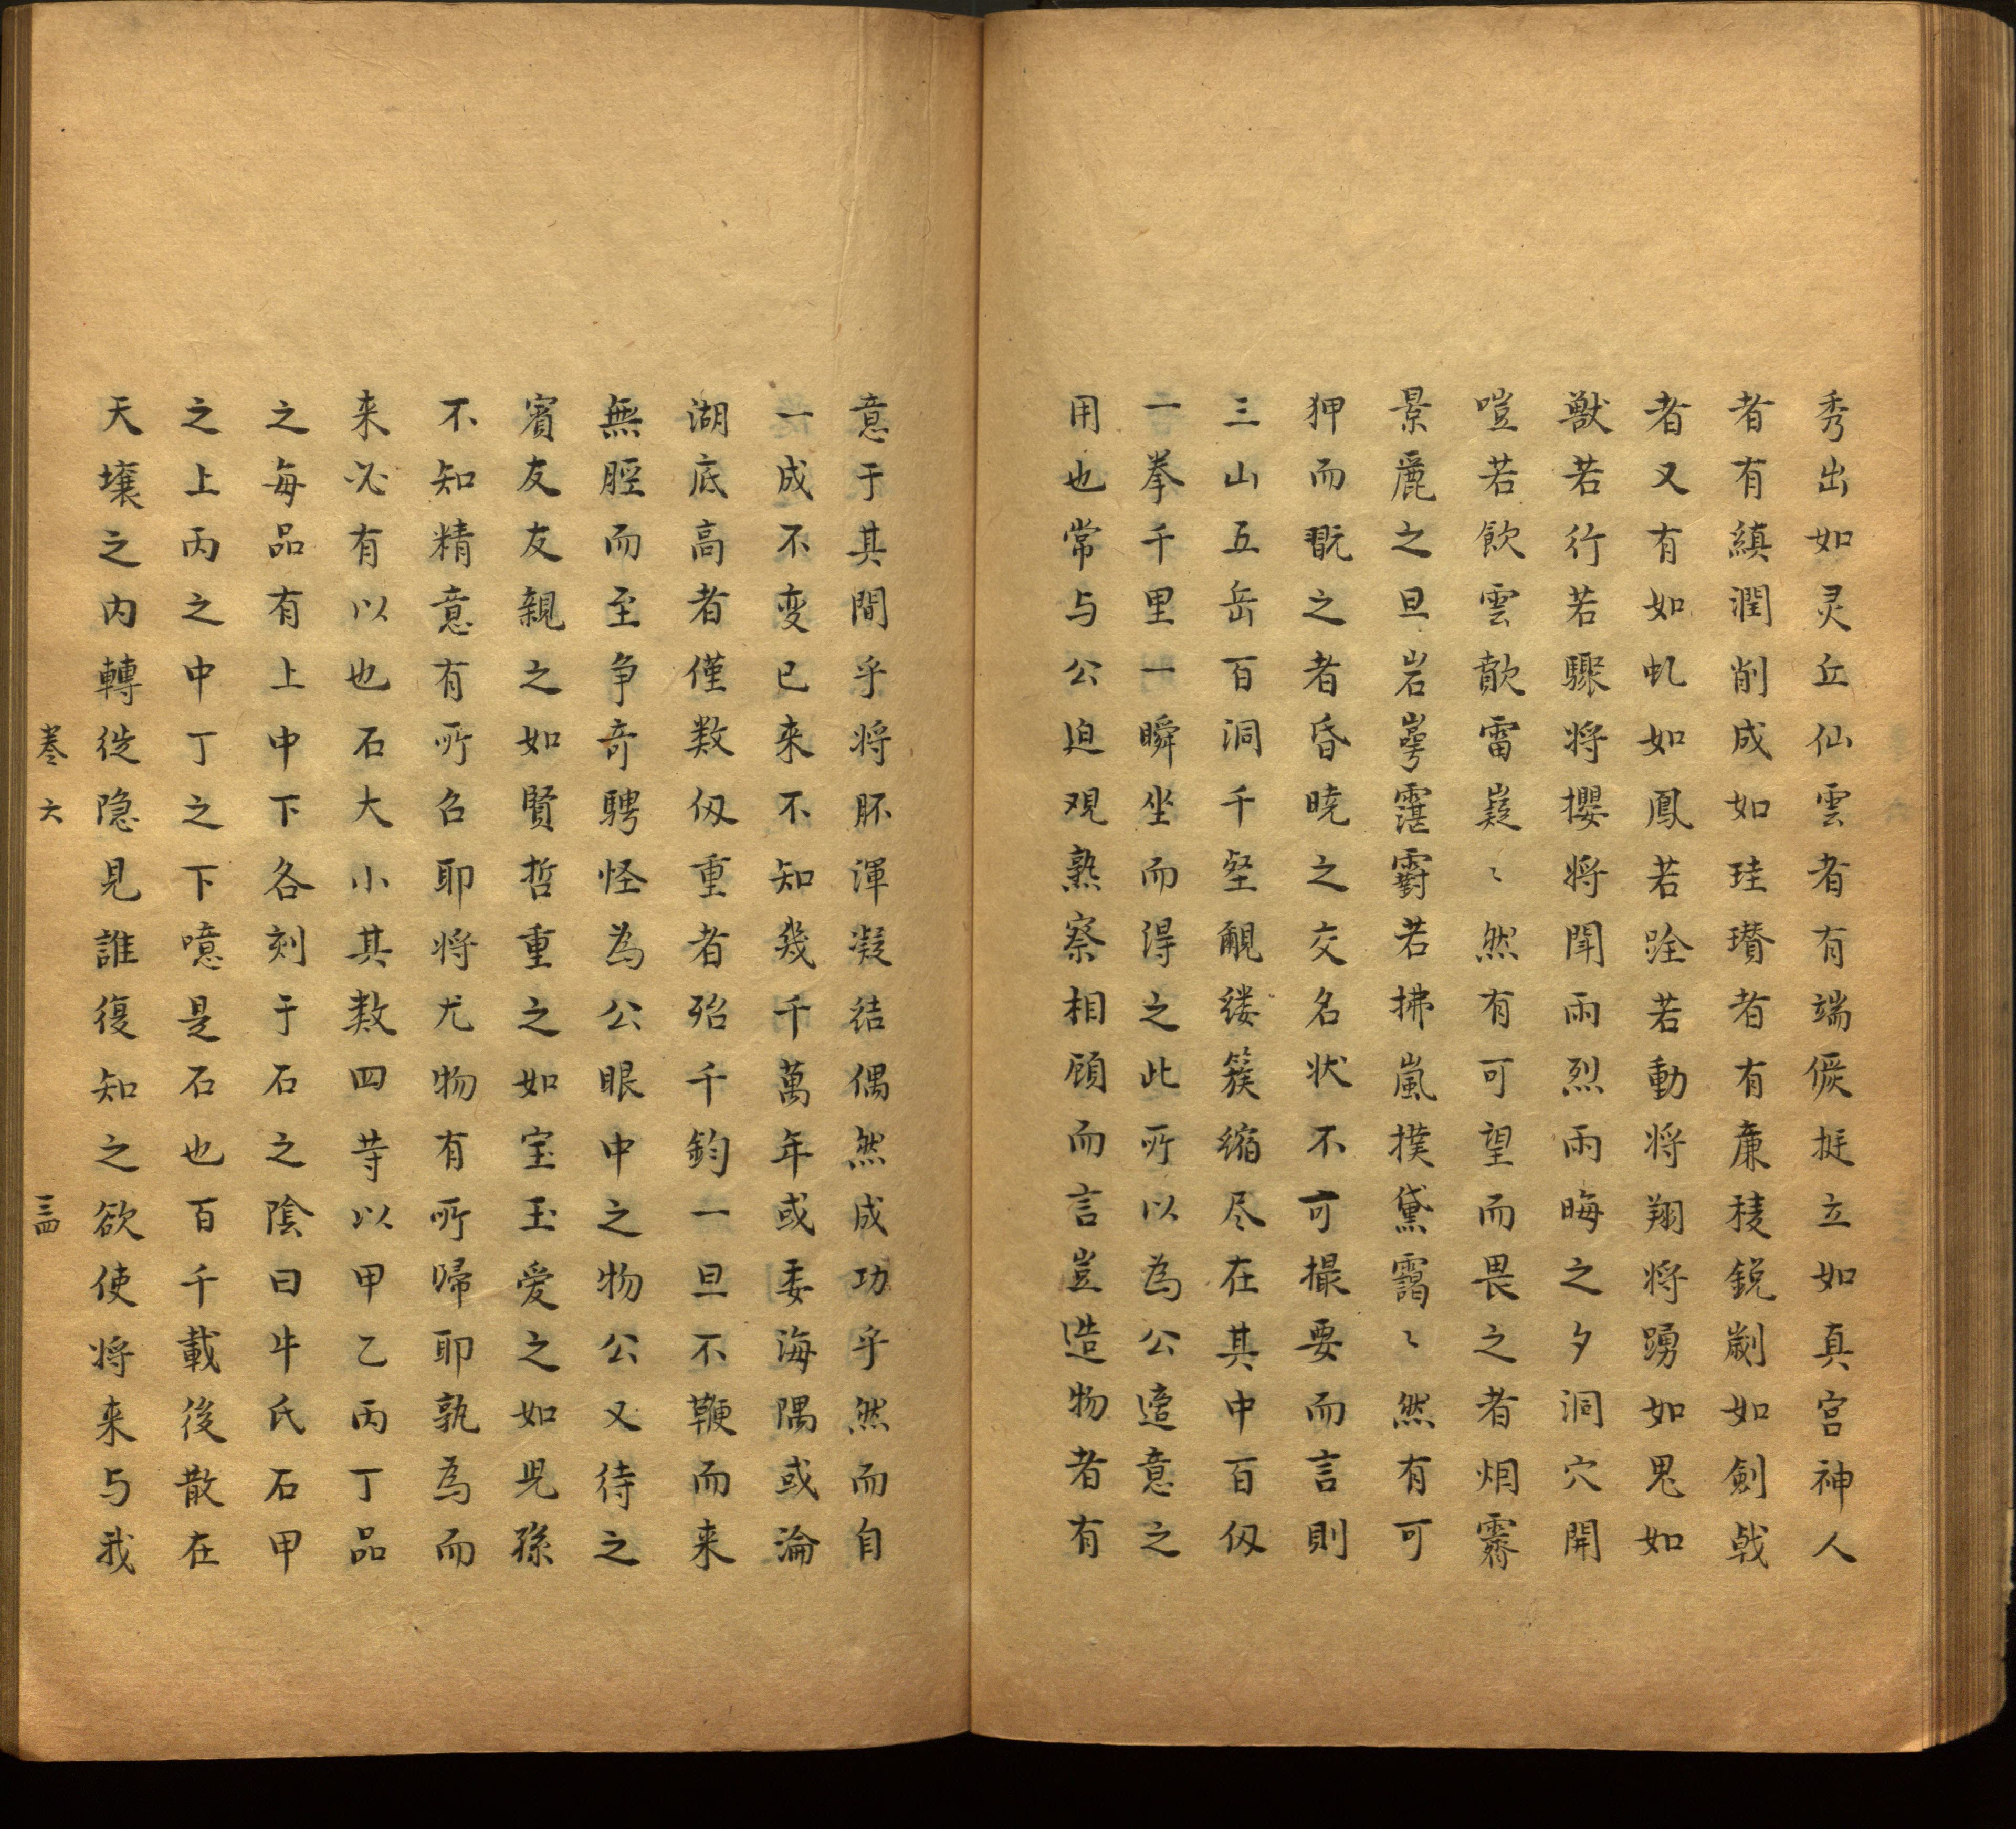 秀出如灵丘仙雲者有端儼挺立如真宫神人
者有縝潤削成如珪瓚者有廉稜鋭劌如劍戟
者又有如虬如鳳若跧若動将翔将踴如鬼如
獸若行若驟将攫将閗雨烈雨晦之夕洞穴開
嗳若飲雲歕雷嶷〻然有可望而畏之者烟霽
景麗之旦岩崿霮䨴若拂嵐撲黛靄〻然有可
狎而翫之者昏曉之交名状不可撮要而言則
三山五岳百洞千壑覼缕簇缩尽在其中百仭
一拳千里一瞬坐而得之此所以為公適意之
用也常与公迫观熟察相顾而言豈造物者有
意于其間乎将胚渾凝結偶然成功乎然而自
一成不变已来不知幾千萬年或委海隅或淪
湖底高者僅数仭重者殆千鈞一旦不鞭而来
無脛而至争奇騁怪為公眼中之物公又待之
賓友友親之如賢哲重之如宝玉爱之如兒孫
不知精意有所召耶将尤物有所歸耶孰為而
来必有以也石大小其数四䓁以甲乙丙丁品
之每品有上中下各刻于石之陰曰牛氏石甲
之上丙之中丁之下噫是石也百千載後散在
天壤之内轉徙隐見誰復知之欲使将来与我
卷六
三四